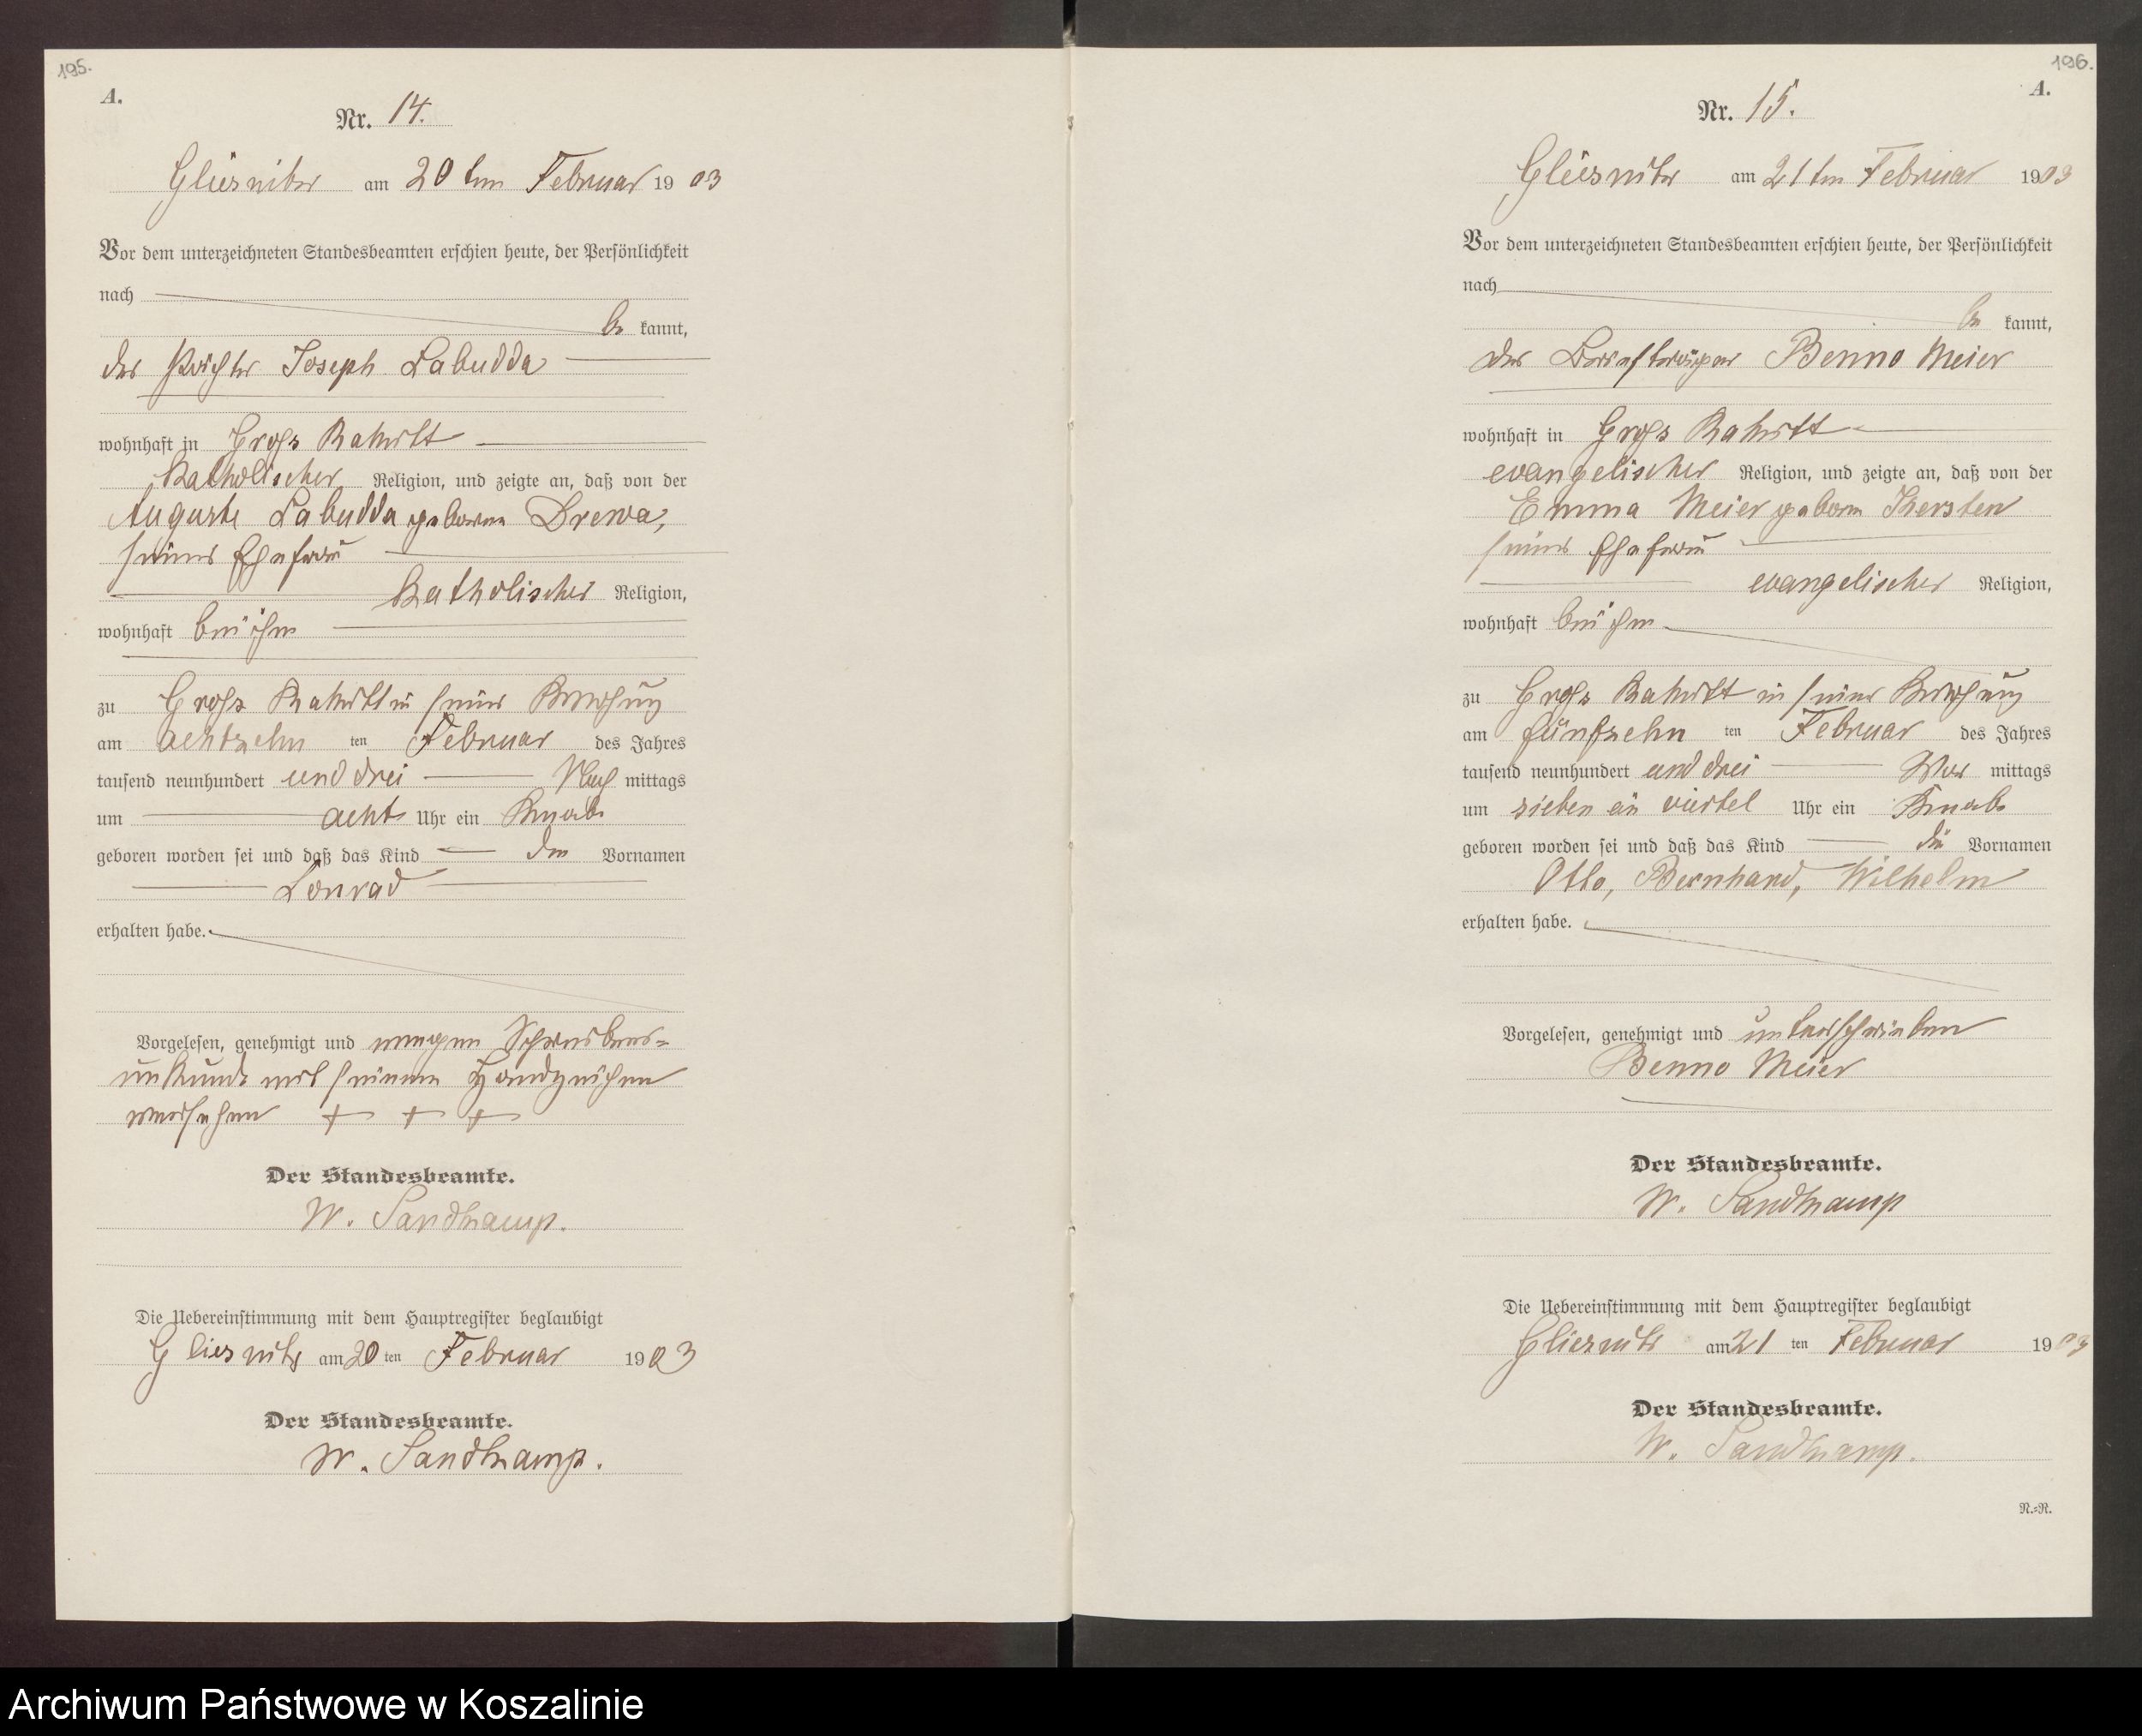 195.
A.
Nr. 14.
Gliesnitz am 20ten Februar 1903
Vor dem unterzeichneten Standesbeamten erschien heute, der Persönlichkeit
nach
be kannt,
der Pächter Joseph Labudda
wohnhaft in Gross Rakitt
Katholischer Religion, und zeigte an, daß von der
Auguste Labudda geborene Drewa,
seiner Ehefrau
Katholischer Religion,
wohnhaft bei ihm
zu Gross Rakitt in seiner Wohnung
am achtzehn ten Februar des Jahres
tausend neunhundert und drei Nach mittags
um acht Uhr ein Knabe
geboren worden sei und daß das Kind den Vornamen
Conrad
erhalten habe.
Vorgelesen, genehmigt und wegen Schreibens-
unkunde mit seinem Handzeichen
versehen + + +
Der Standesbeamte.
W. Sandkamp.
Die Uebereinstimmung mit dem Hauptregister beglaubigt
Gliesnitz am 20 ten Februar 1903
Der Standesbeamte.
W. Sandkamp.
196.
A.
Nr. 15.
Gliesnitz am 21ten Februar 1903
Vor dem unterzeichneten Standesbeamten erschien heute, der Persönlichkeit
nach
be kannt,
der Benno Meier
wohnhaft in Gross Rakitt
evangelischer Religion, und zeigte an, daß von der
Emma Meier geboren Kersten
seiner Ehefrau
evangelischer Religion,
wohnhaft bei ihm
zu Gross Rakitt in seiner Wohnung
am fünfzehn ten Februar des Jahres
tausend neunhundert und drei Vor mittags
um sieben ein viertel Uhr ein Knabe
geboren worden sei und daß das Kind die Vornamen
Otto, Bernhard, Wilhelm
erhalten habe.
Vorgelesen, genehmigt und unterschrieben
Benno Meier
Der Standesbeamte.
W. Sandkamp
Die Uebereinstimmung mit dem Hauptregister beglaubigt
Gliesnitz am 21 ten Februar 1903
Der Standesbeamte.
W. Sandkamp.
N.=R.
Archiwum Państwowe w Koszalinie